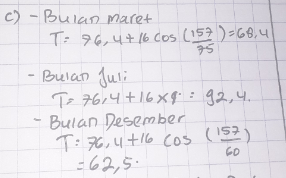 c) - Bulan maret
T = 76,4 + 16 cos (157/75) = 68,4
- Bulan Juli
T = 76,4 + 16 x 9 : 92,4.
- Bulan Desember
T : 76,4 + 16 cos (157/60)
= 62,5.